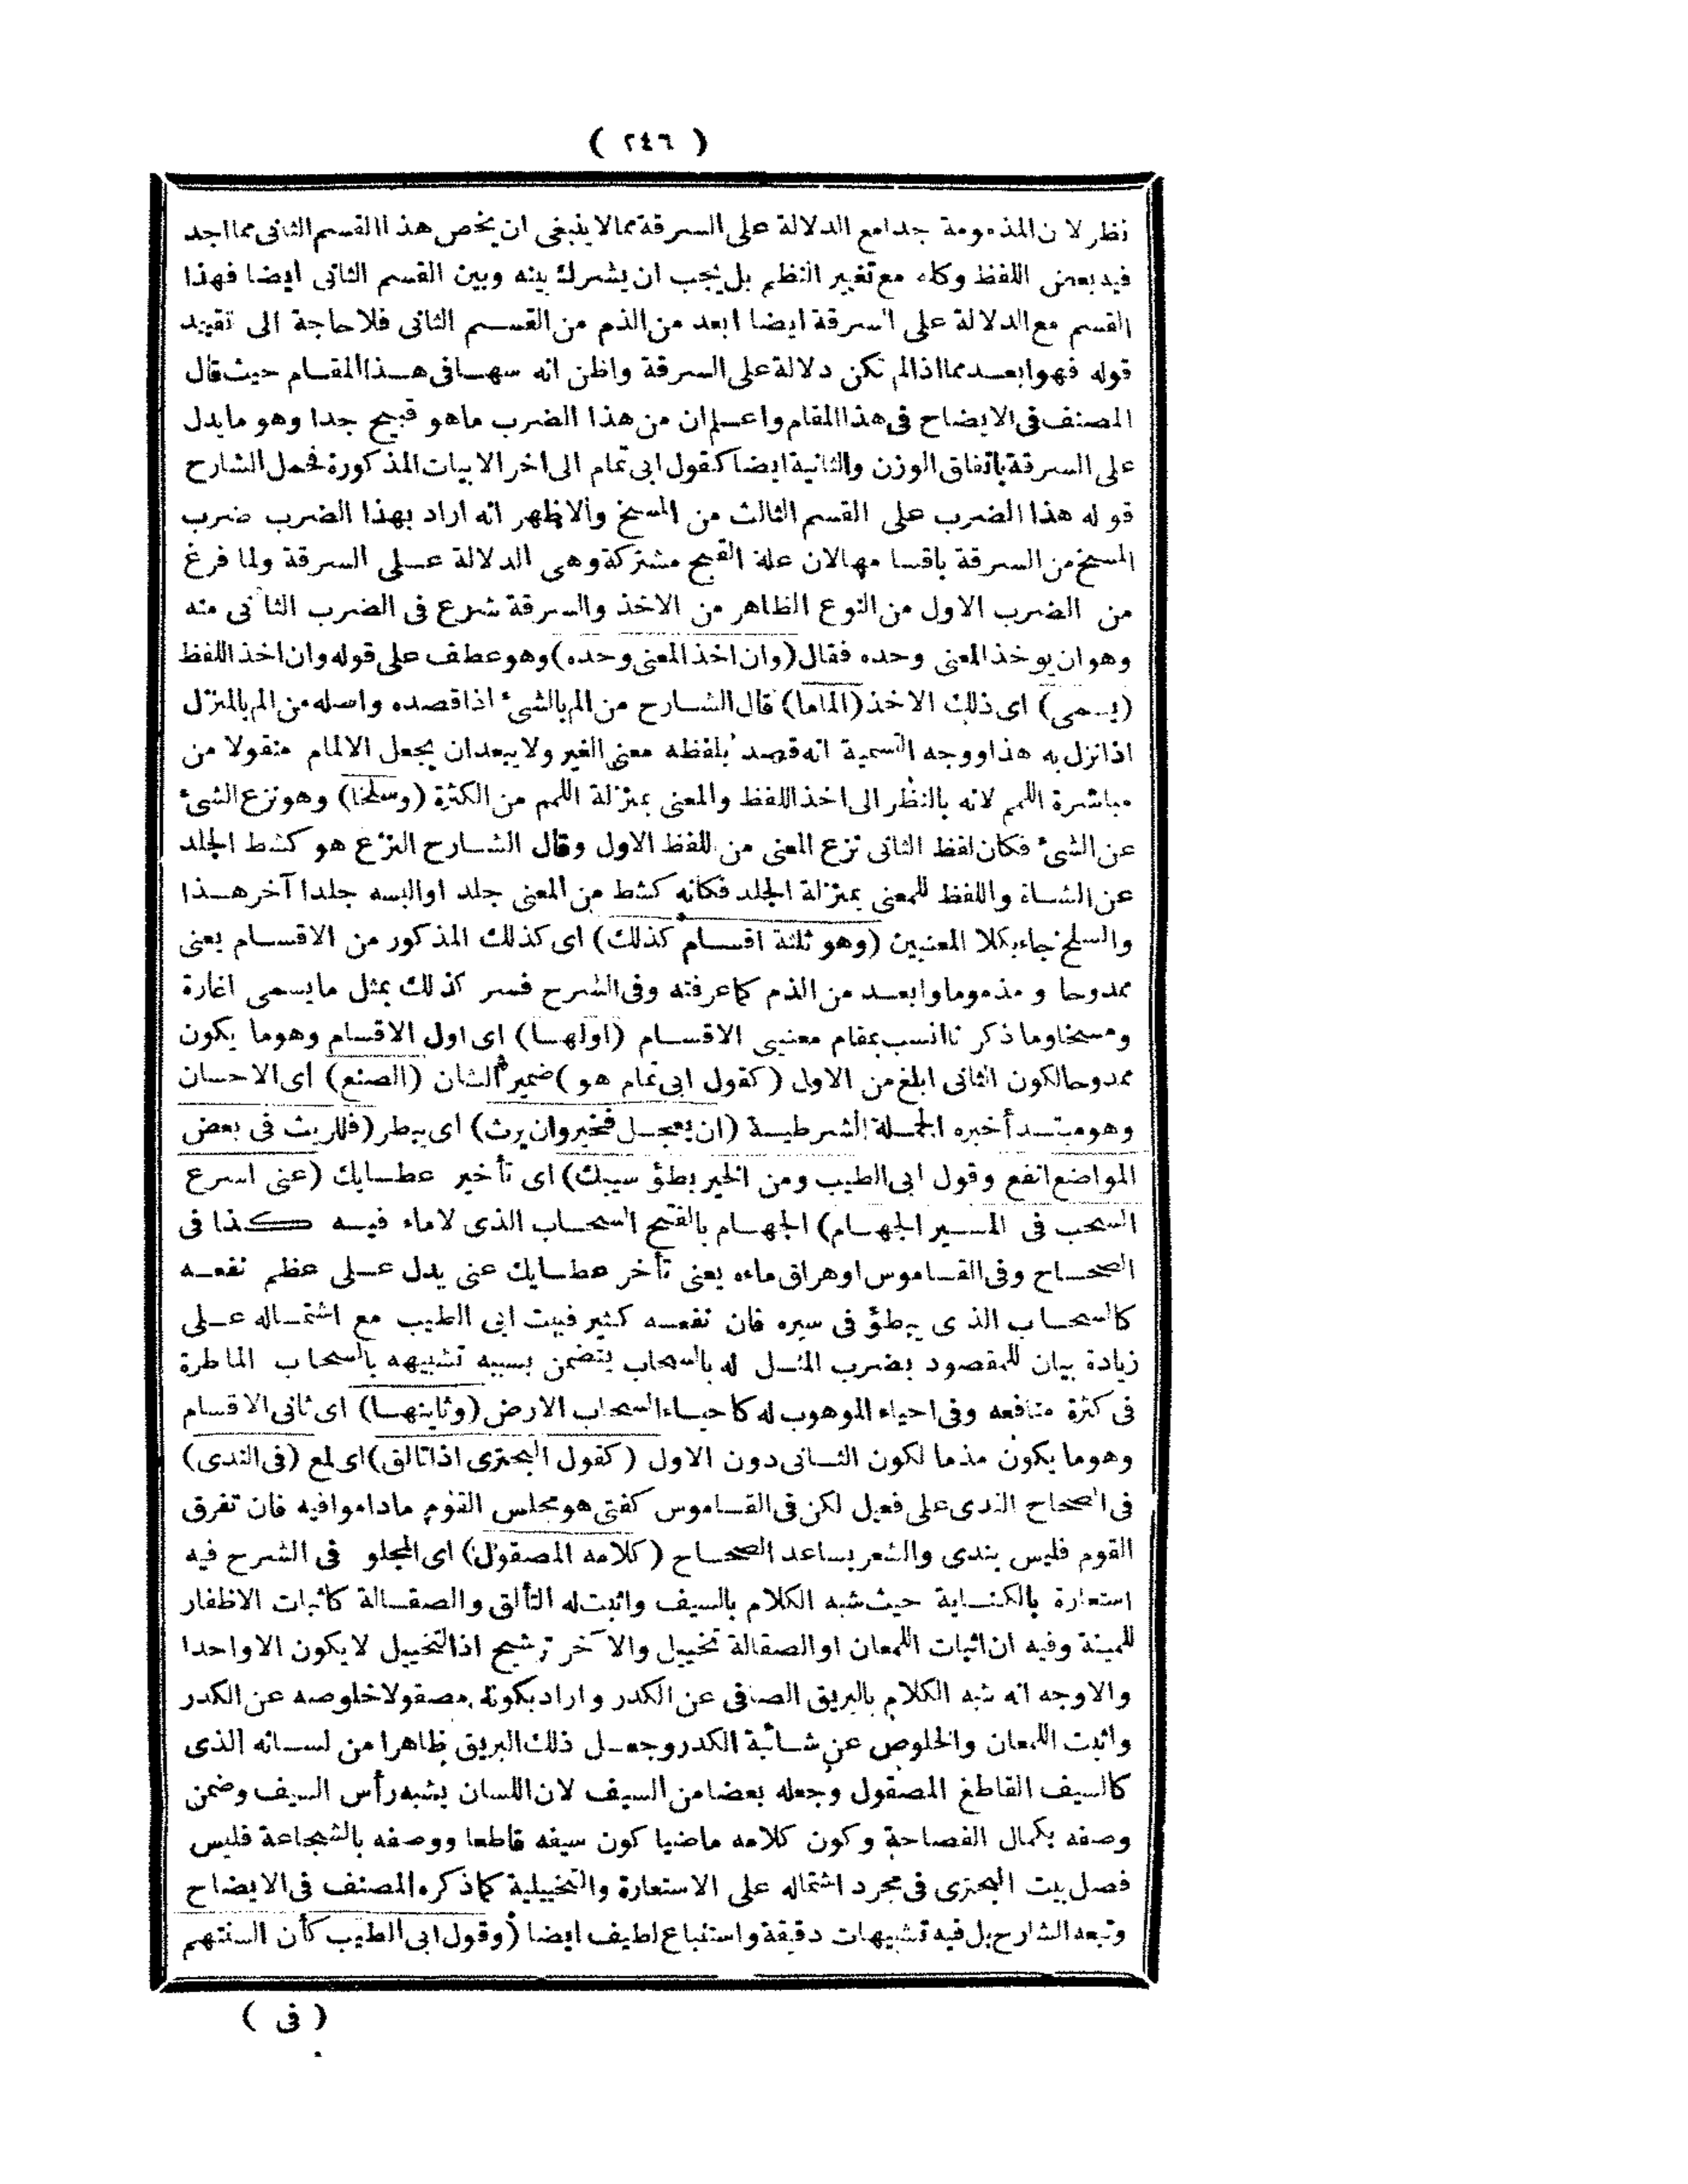 ( ٢٤٦ )
نظر لان المذمومة جدا مع الدلالة على السرقة مما لا ينبغى ان يخص هذا القسم الثانى مما اجد
فيه بعض اللفظ وكله مع تغيير النظم بل يجب ان يشرك بينه وبين القسم الثانى ايضا فهذا
القسم مع الدلالة على السرقة ايضا ابعد من الذم من القسم الثانى فلا حاجة الى تقييد
قوله فهو ابعد مما اذا لم تكن دلالة على السرقة واظن انه سها فى هذا المقام حيث قال
المصنف فى الايضاح فى هذا المقام واعلم ان من هذا الضرب ما هو قبيح جدا وهو ما يدل
على السرقة باتفاق الوزن والثانية ايضا كقول ابى تمام الى اخر الابيات المذكورة فحمل الشارح
قوله هذا الضرب على القسم الثالث من المسخ والاظهر انه اراد بهذا الضرب ضرب
المسخ من السرقة باقسامها لان علة القبح مشتركة وهى الدلالة على السرقة ولما فرغ
من الضرب الاول من النوع الظاهر من الاخذ والسرقة شرع فى الضرب الثانى منه
وهو ان يوخذ المعنى وحده فقال (وان اخذ المعنى وحده) وهو عطف على قوله وان اخذ اللفظ
(يسمى) اى ذلك الاخذ (الماما) قال الشارح من الم بالشئ اذا قصده واصله من الم بالمنزل
اذا نزل به هذا ووجه التسمية انه قصد بلفظه معنى الغير ولا يبعد ان يجعل الالمام منقولا من
مباشرة اللمم لانه بالنظر الى اخذ اللفظ والمعنى بمنزلة اللمم من الكثرة (وسلخا) وهو نزع الشئ
عن الشئ فكان لفظ الثانى نزع المعنى من للفظ الاول وقال الشارح النزع هو كشط الجلد
عن الشاة واللفظ للمعنى بمنزلة الجلد فكانه كشط من المعنى جلد او البسه جلدا آخر هذا
والسلخ جاء بكلا المعنيين (وهو ثلثة اقسام كذلك) اى كذلك المذكور من الاقسام يعنى
ممدوحا و مذموما وابعد من الذم كما عرفته وفى الشرح فسر كذلك بمثل ما يسمى اغارة
ومسخا وما ذكرنا انسب بمقام معنيى الاقسام (اولها) اى اول الاقسام وهو ما يكون
ممدوحا لكون الثانى ابلغ من الاول (كقول ابى تمام هو) ضمير الشان (الصنع) اى الاحسان
وهو مبتدأ خبره الجملة الشرطية (ان يعجل فخير وان يرث) اى يبطر (فللريث فى بعض
المواضع انفع وقول ابى الطيب ومن الخير بطؤ سيبك) اى تأخير عطايك (عنى اسرع
السحب فى المسير الجهام) الجهام بالفتح السحاب الذى لا ماء فيه كذا فى
الصحاح وفى القاموس او هراق ماءه يعنى تأخر عطايك عنى يدل على عظم نفعه
كالسحاب الذى يبطؤ فى سيره فان نفعه كثير فبيت ابى الطيب مع اشتماله على
زيادة بيان للمقصود بضرب المثل له بالسحاب يتضمن بسببه تشبيهه بالسحاب الماطرة
فى كثرة منافعه وفى احياء الموهوب له كاحياء السحاب الارض (وثانيها) اى ثانى الاقسام
وهو ما يكون مذما لكون الثانى دون الاول (كقول البحترى اذا تالق) اى لمع (فى الندى)
فى الصحاح الندى على فعيل لكن فى القاموس كفتى هو مجلس القوم ماداموا فيه فان تفرق
القوم فليس بندى والشعر يساعد الصحاح (كلامه المصقول) اى المجلو فى الشرح فيه
استعارة بالكناية حيث شبه الكلام بالسيف واثبت له التألق والصقالة كاثبات الاظفار
للمينة وفيه ان اثبات اللمعان او الصقالة تخييل والآخر ترشيح اذ التخييل لا يكون الا واحدا
والاوجه انه شبه الكلام بالبريق الصافى عن الكدر واراد بكونه مصقولا خلوصه عن الكدر
واثبت اللمعان والخلوص عن شائبة الكدر وجعل ذلك البريق ظاهرا من لسانه الذى
كالسيف القاطع المصقول وجعله بعضا من السيف لان اللسان يشبه رأس السيف وضمن
وصفه بكمال الفصاحة وكون كلامه ماضيا كون سيفه قاطعا ووصفه بالشجاعة فليس
فصل بيت البحترى فى مجرد اشتماله على الاستعارة والتخييلية كما ذكره المصنف فى الايضاح
وتبعه الشارح بل فيه تشبيهات دقيقة واستتباع لطيف ايضا (وقول ابى الطيب كأن السنتهم
( فى )